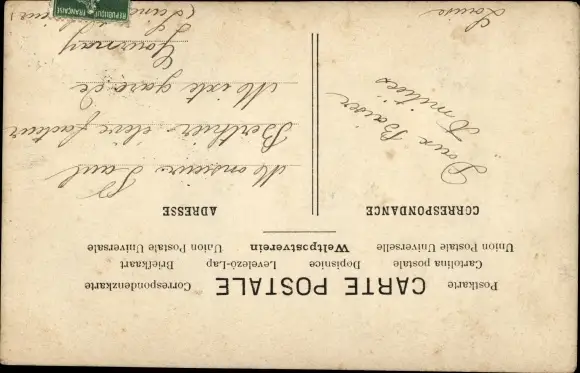 CARTE POSTALE
Postkarte
Correspondenzkarte
Cartolina postale
Dopisnice
Levelezö-Lap
Briefkaart
Union Postale Universelle
Weltpostverein
Union Postale Universale
CORRESPONDANCE
ADRESSE
Doux Baiser
Amitiés
Louise
Monsieur Paul
Berthier élève facteur
Mixte gare de
Gournay
REPUBLIQUE FRANÇAISE